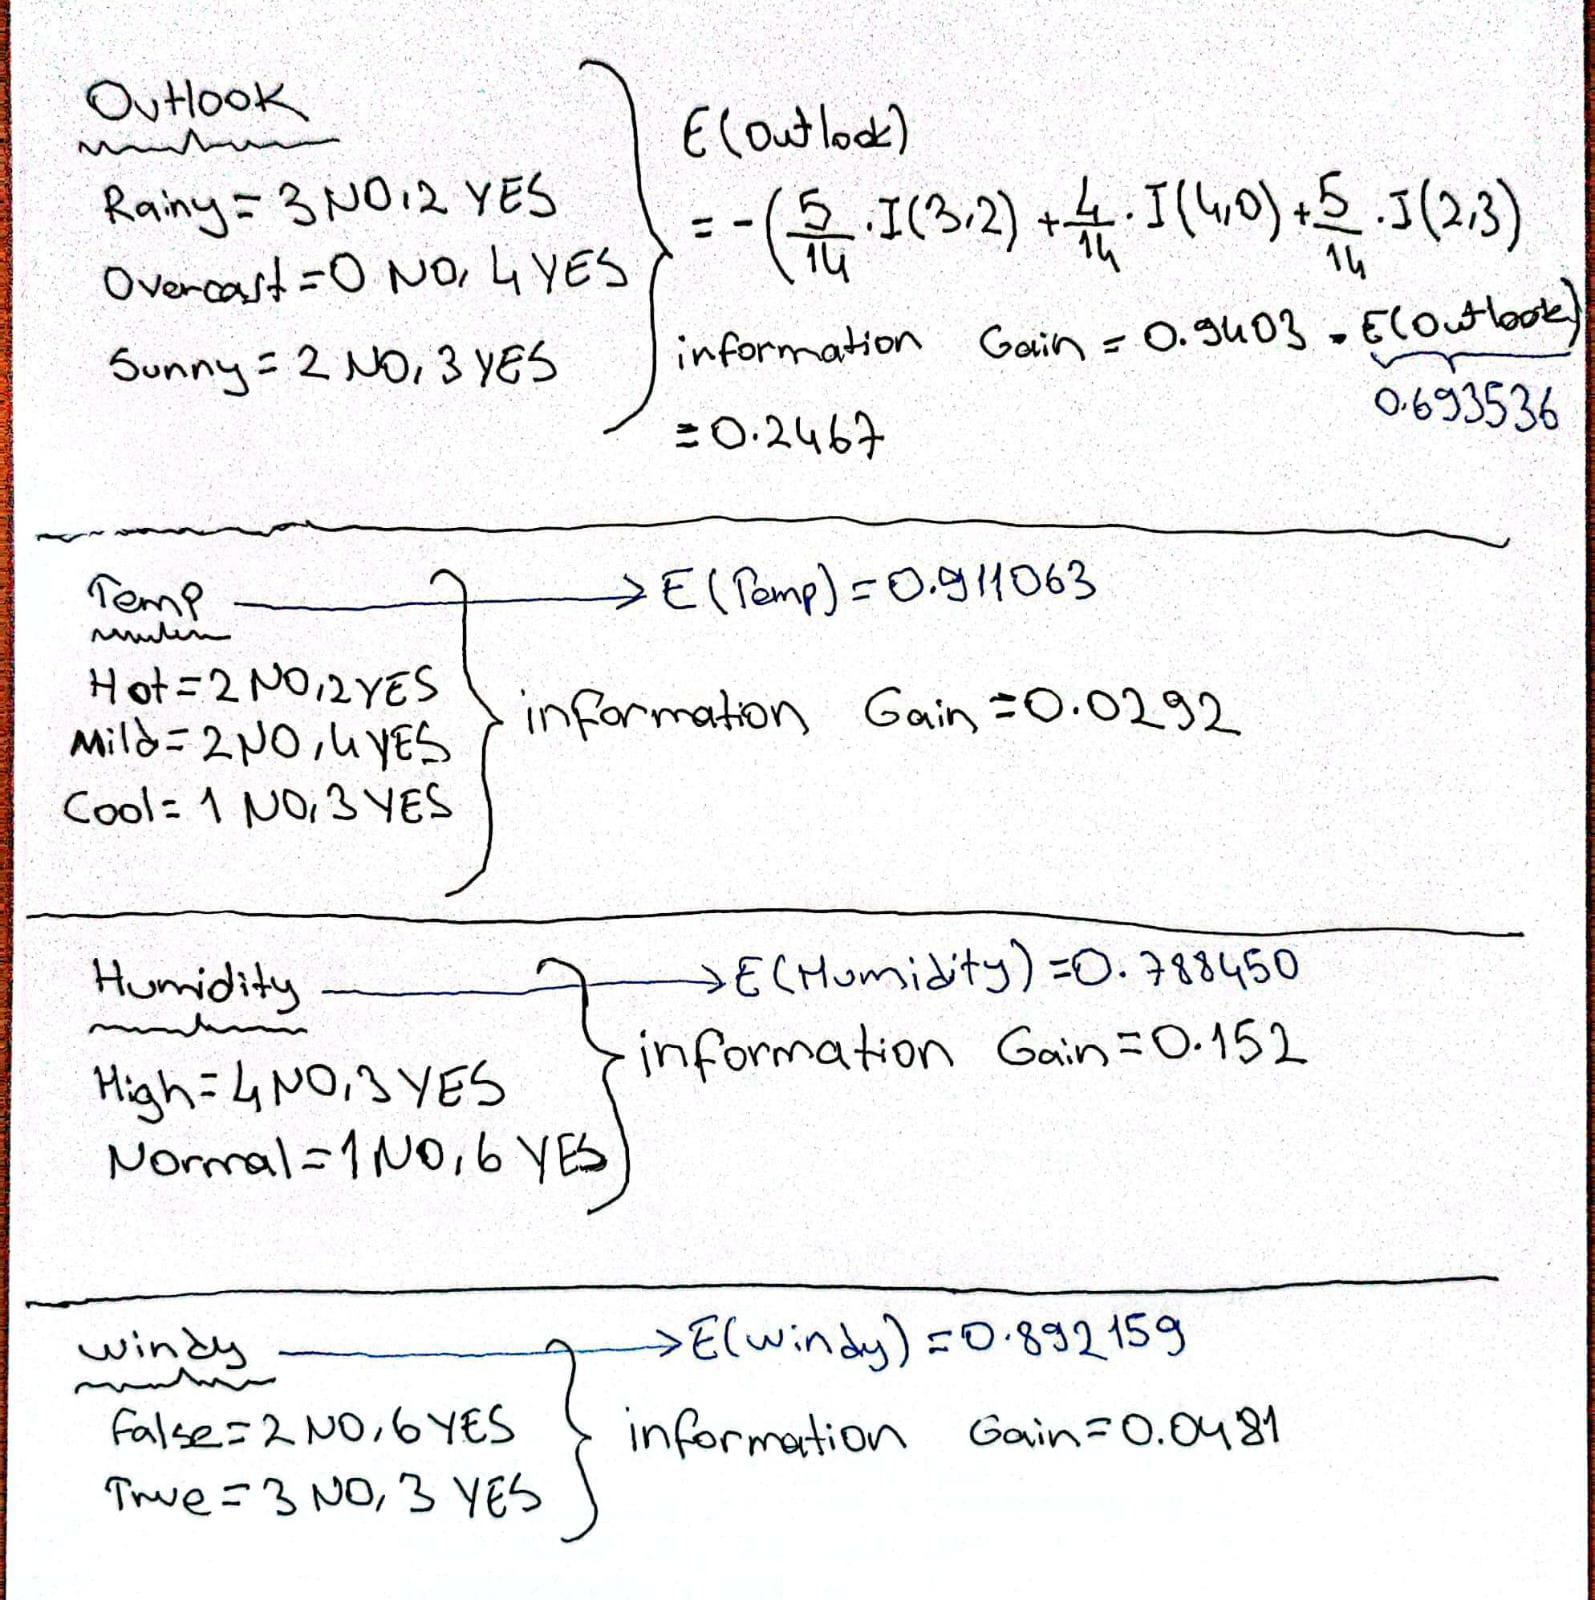 Outlook
Rainy = 3 NO, 2 YES
Overcast = 0 NO, 4 YES
Sunny = 2 NO, 3 YES
E(Outlook)
= -(5/14 . I(3,2) + 4/14 . I(4,0) + 5/14 . I(2,3)
information Gain = 0.9403 - E(Outlook)
0.693536
= 0.2467
Temp → E(Temp) = 0.911063
Hot = 2 NO, 2 YES
Mild = 2 NO, 4 YES
Cool = 1 NO, 3 YES
information Gain = 0.0292
Humidity → E(Humidity) = 0.788450
High = 4 NO, 3 YES
Normal = 1 NO, 6 YES
information Gain = 0.152
windy → E(windy) = 0.892159
False = 2 NO, 6 YES
True = 3 NO, 3 YES
information Gain = 0.0481